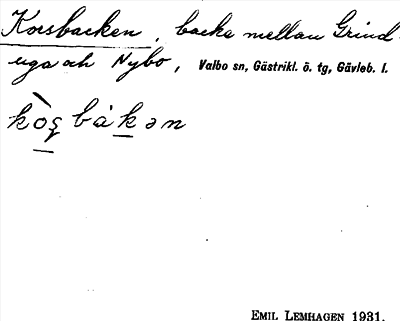 Korsbacken, backe mellan Grind-
uga och Nybo, Valbo sn, Gästrikl. ö. tg, Gävleb. l.
kòʂbákən
EMIL LEMHAGEN 1931.